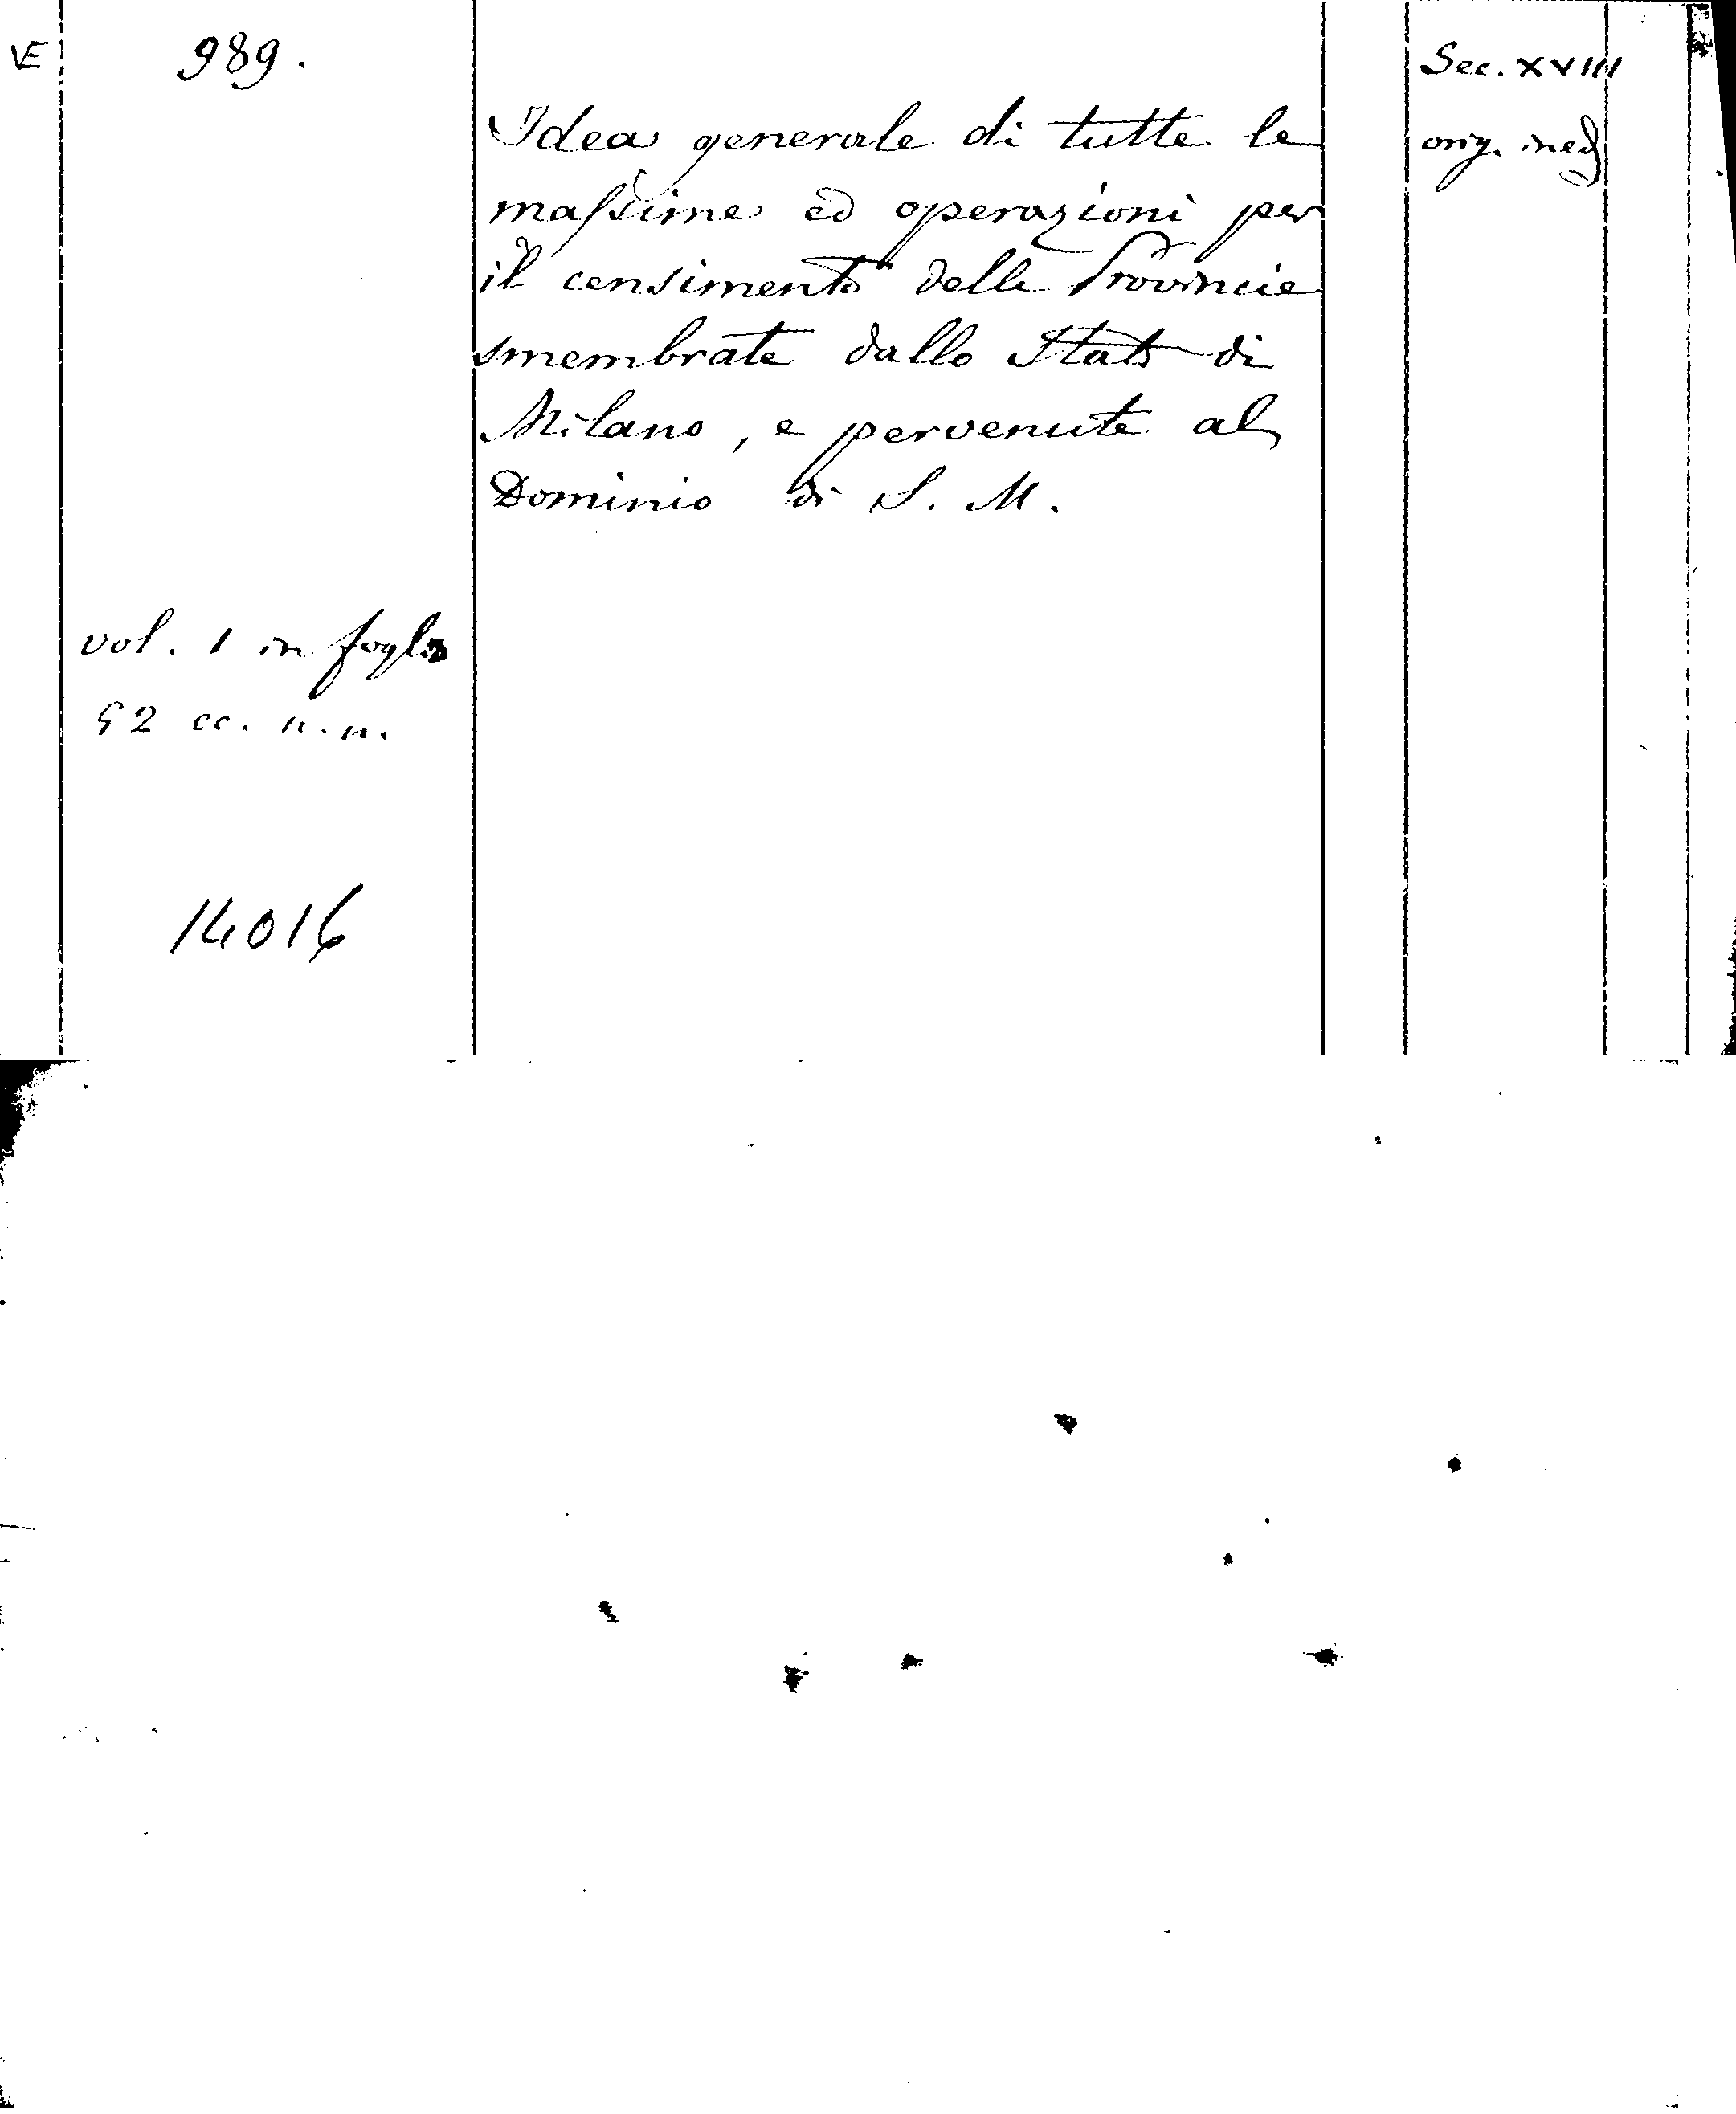 VE
989.
Sec. XVIII
orig. ined
Idea generale di tutte le
massime ed operazioni per
il censimento delle Provincie
smembrate dallo Stato di
Milano, e pervenute al
Dominio di S. M.
vol. 1 in foglio
92 cc. n. n.
14016